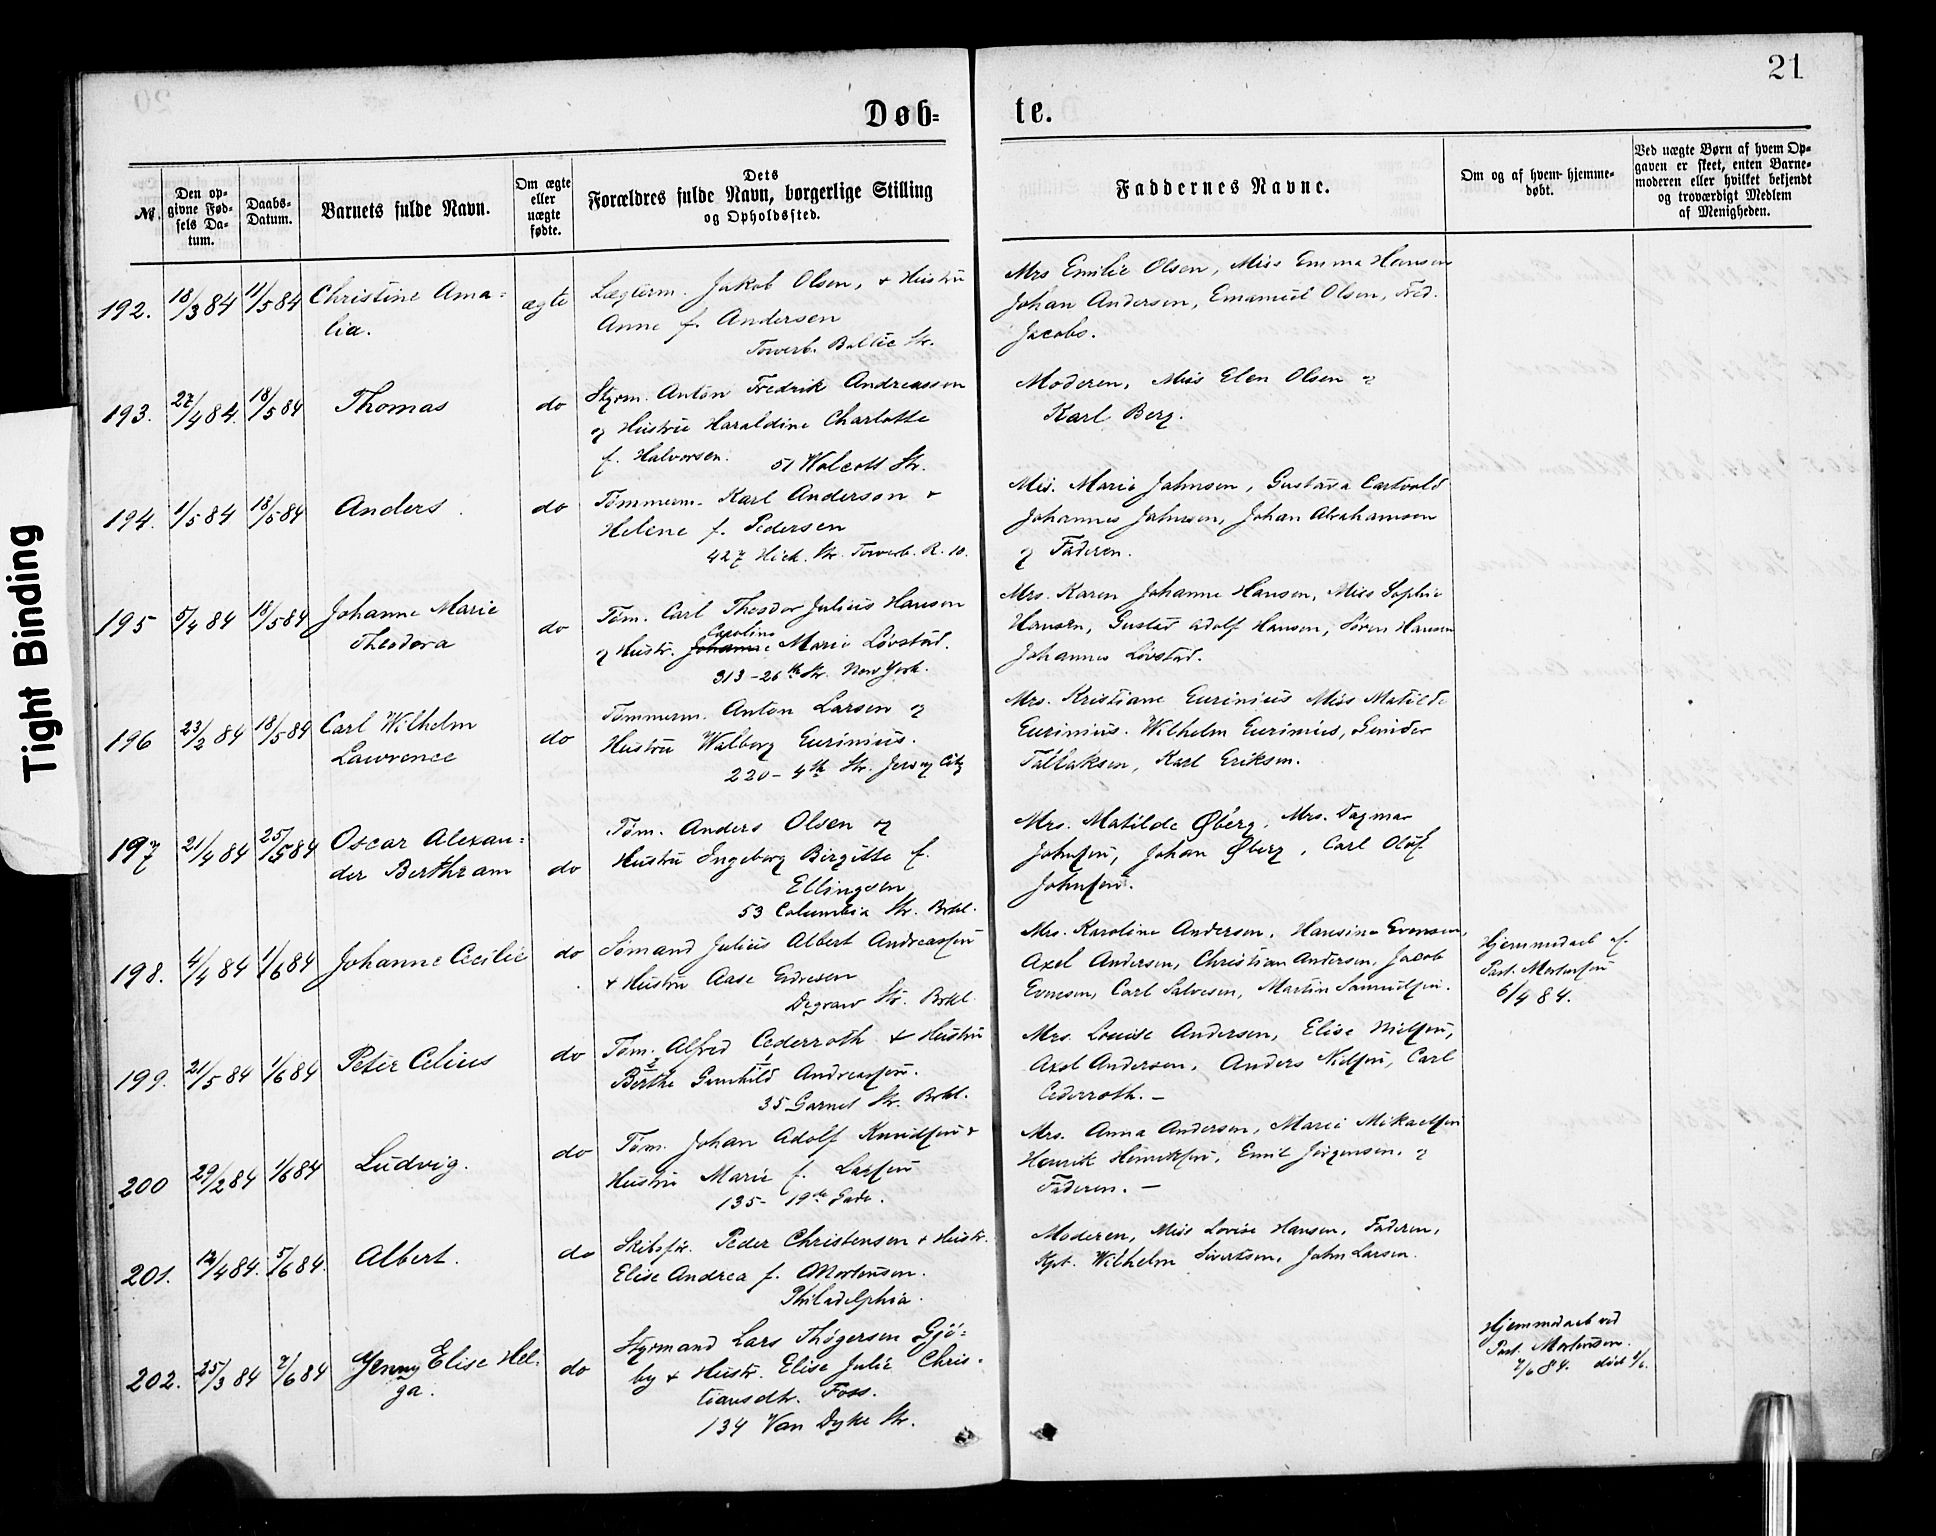 21
Døb=
te.
Tight Binding
№.
Den op-
givne Fød-
sels Da-
tum.
Daabs-
Datum.
Barnets fulde Navn.
Om ægte
eller
uægte
fødte.
Dets
Forældres fulde Navn, borgerlige Stilling
og Opholdssted.
Faddernes Navne.
Om og af hvem hjemme-
døbt.
Ved uægte Børn af hvem Op-
gaven er skeet, enten Barne-
moderen eller hvilket bekjendt
og troværdigt Medlem
af Menigheden.
192. 18/3 84 11/5 84 Christine Ama=
lia.
ægte
Lægterm. Jakob Olsen, + Hustru
Anne f. Andersen
Towerb. Baltic Str.
Mrs Emilie Olsen, Miss Emma Hansen
Johan Andersen, Emanuel Olsen, Fred.
Jacobs.
193. 27/4 84. 18/5 84 Thomas
do
Styrm. Anton Fredrik Andreassen
og Hustru Haraldine Charlotte
f. Halvorsen. 51 Walcott Str.
Moderen, Miss Elen Olsen og
Karl Berg.
194. 1/5 84 18/5 84 Anders.
do
Tømmerm. Karl Anderson +
Helene f. Pedersen
427 Hick. Str. Towerb. R. 10.
Mis. Marie Johnsen, Gustava
Johannes Johnsen, Johan Abrahamsen
og Faderen.
195 5/4 84 18/5 84 Johanne Marie
Theodora
do
Tøm. Carl Theodor Julius Hansen
Caroline
og Hustr. Johanne Marie Løvstad.
313-26th Str. New York.
Mrs. Karen Johanne Hansen, Miss Sophie
Hansen, Gustav Adolf Hansen, Søren Hansen
Johannes Løvstad.
196 23/2 84 18/5 84 Carl Wilhelm
Lawrence
do
Tømmerm. Anton Larsen og
Hustru Walborg Eurinius.
220-4th Str. Jersey City
Mrs. Kristiane Eurinius Miss Matilde
Eurinius. Wilhelm Eurinius, Gunder
Tallaksen, Karl Eriksen.
197 21/4 84 25/5 84 Oscar Alexan=
der Berthram
do
Tøm. Anders Olsen og
Hustru Ingeborg Birgitte f.
Ellingsen
53 Columbia Str. Brkl.
Mrs. Matilde Øberg, Mrs. Dagmar
Johnsen, Johan Øberg, Carl Oluf
Johnsen.
198. 4/4 84 1/6 84 Johanne Cecilie
do
Sømand Julius Albert Andreassen
+ Hustru Aase Endresen
Degraw Str. Brkl.
Mrs. Karoline Andersen, Hansine Evensen,
Axel Andersen, Christian Andersen, Jacob
Evensen, Carl Salvesen, Martin Samuelsen.
Hjemmedøbt af
Past. Mortensen
6/4 84.
199. 21/5 84 1/6 84 Peter Celius
do
Tøm. Alfred Cederroth + Hustru
2 1
Berthe Gunhild Andreassen.
35 Garnet Str. Brkl.
Mrs. Louise Andersen, Elise Nielsen,
Axel Andersen, Anders Nielsen, Carl
Cederroth. -
200 29/2 84 1/6 84 Ludvig.
do
Tøm. Johan Adolf Knudsen +
Hustru Marie f. Larsen
135- 19de Gade.
Mrs. Anna Andersen, Marie Mikaelsen
Henrik Henriksen, Emil Jørgensen, og
Faderen. -
201. 12/4 84. 5/6 84. Albert.
do
Skibsfør. Peder Christensen + Hustr.
Elise Andrea f. Mortensen.
Philadelphia.
Moderen, Miss Lovise Hansen, Faderen,
Kpt. Wilhelm Sivertsen, John Larsen.
202. 25/3 84 7/6 84 Jenny Elise Hel-
ga.
do
Styrmand Lars Thøgersen Gjø=
by + Hustr. Elise Julie Chris-
tiansdtr. Foss.
134 Van Dyke Str.
Hjemmedøbt ved
Past. Mortensen.
7/6 84. død